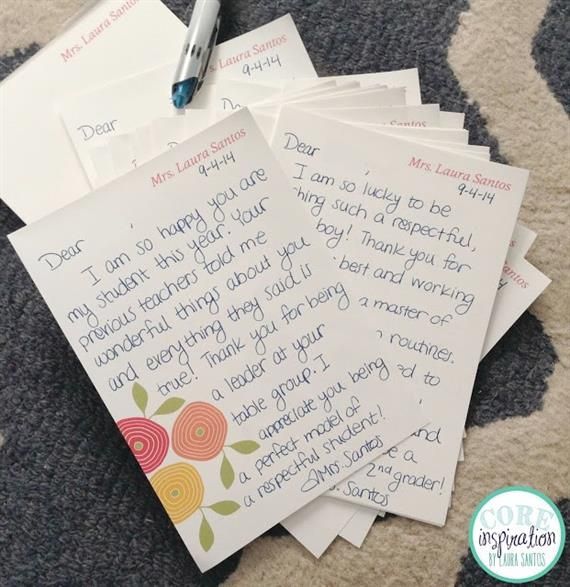 Mrs. Laura Santos
Mrs. Laura Santos
9-4-14
Dear
Mrs. Laura Santos
9-4-14
Dear
I am so happy you are
my student this year. Your
previous teachers told me
wonderful things about you
and everything they said is
true! Thank you for being
a leader at your
table group. I
appreciate you being
a perfect model of
a respectful student!
Mrs. Santos
Mrs. Laura Santos
9-4-14
Dear
I am so lucky to be
such a respectful,
boy! Thank you for
best and working
a master of
routines.
to
and
a
2nd grader!
Santos
CORE
inspiration
BY LAURA SANTOS